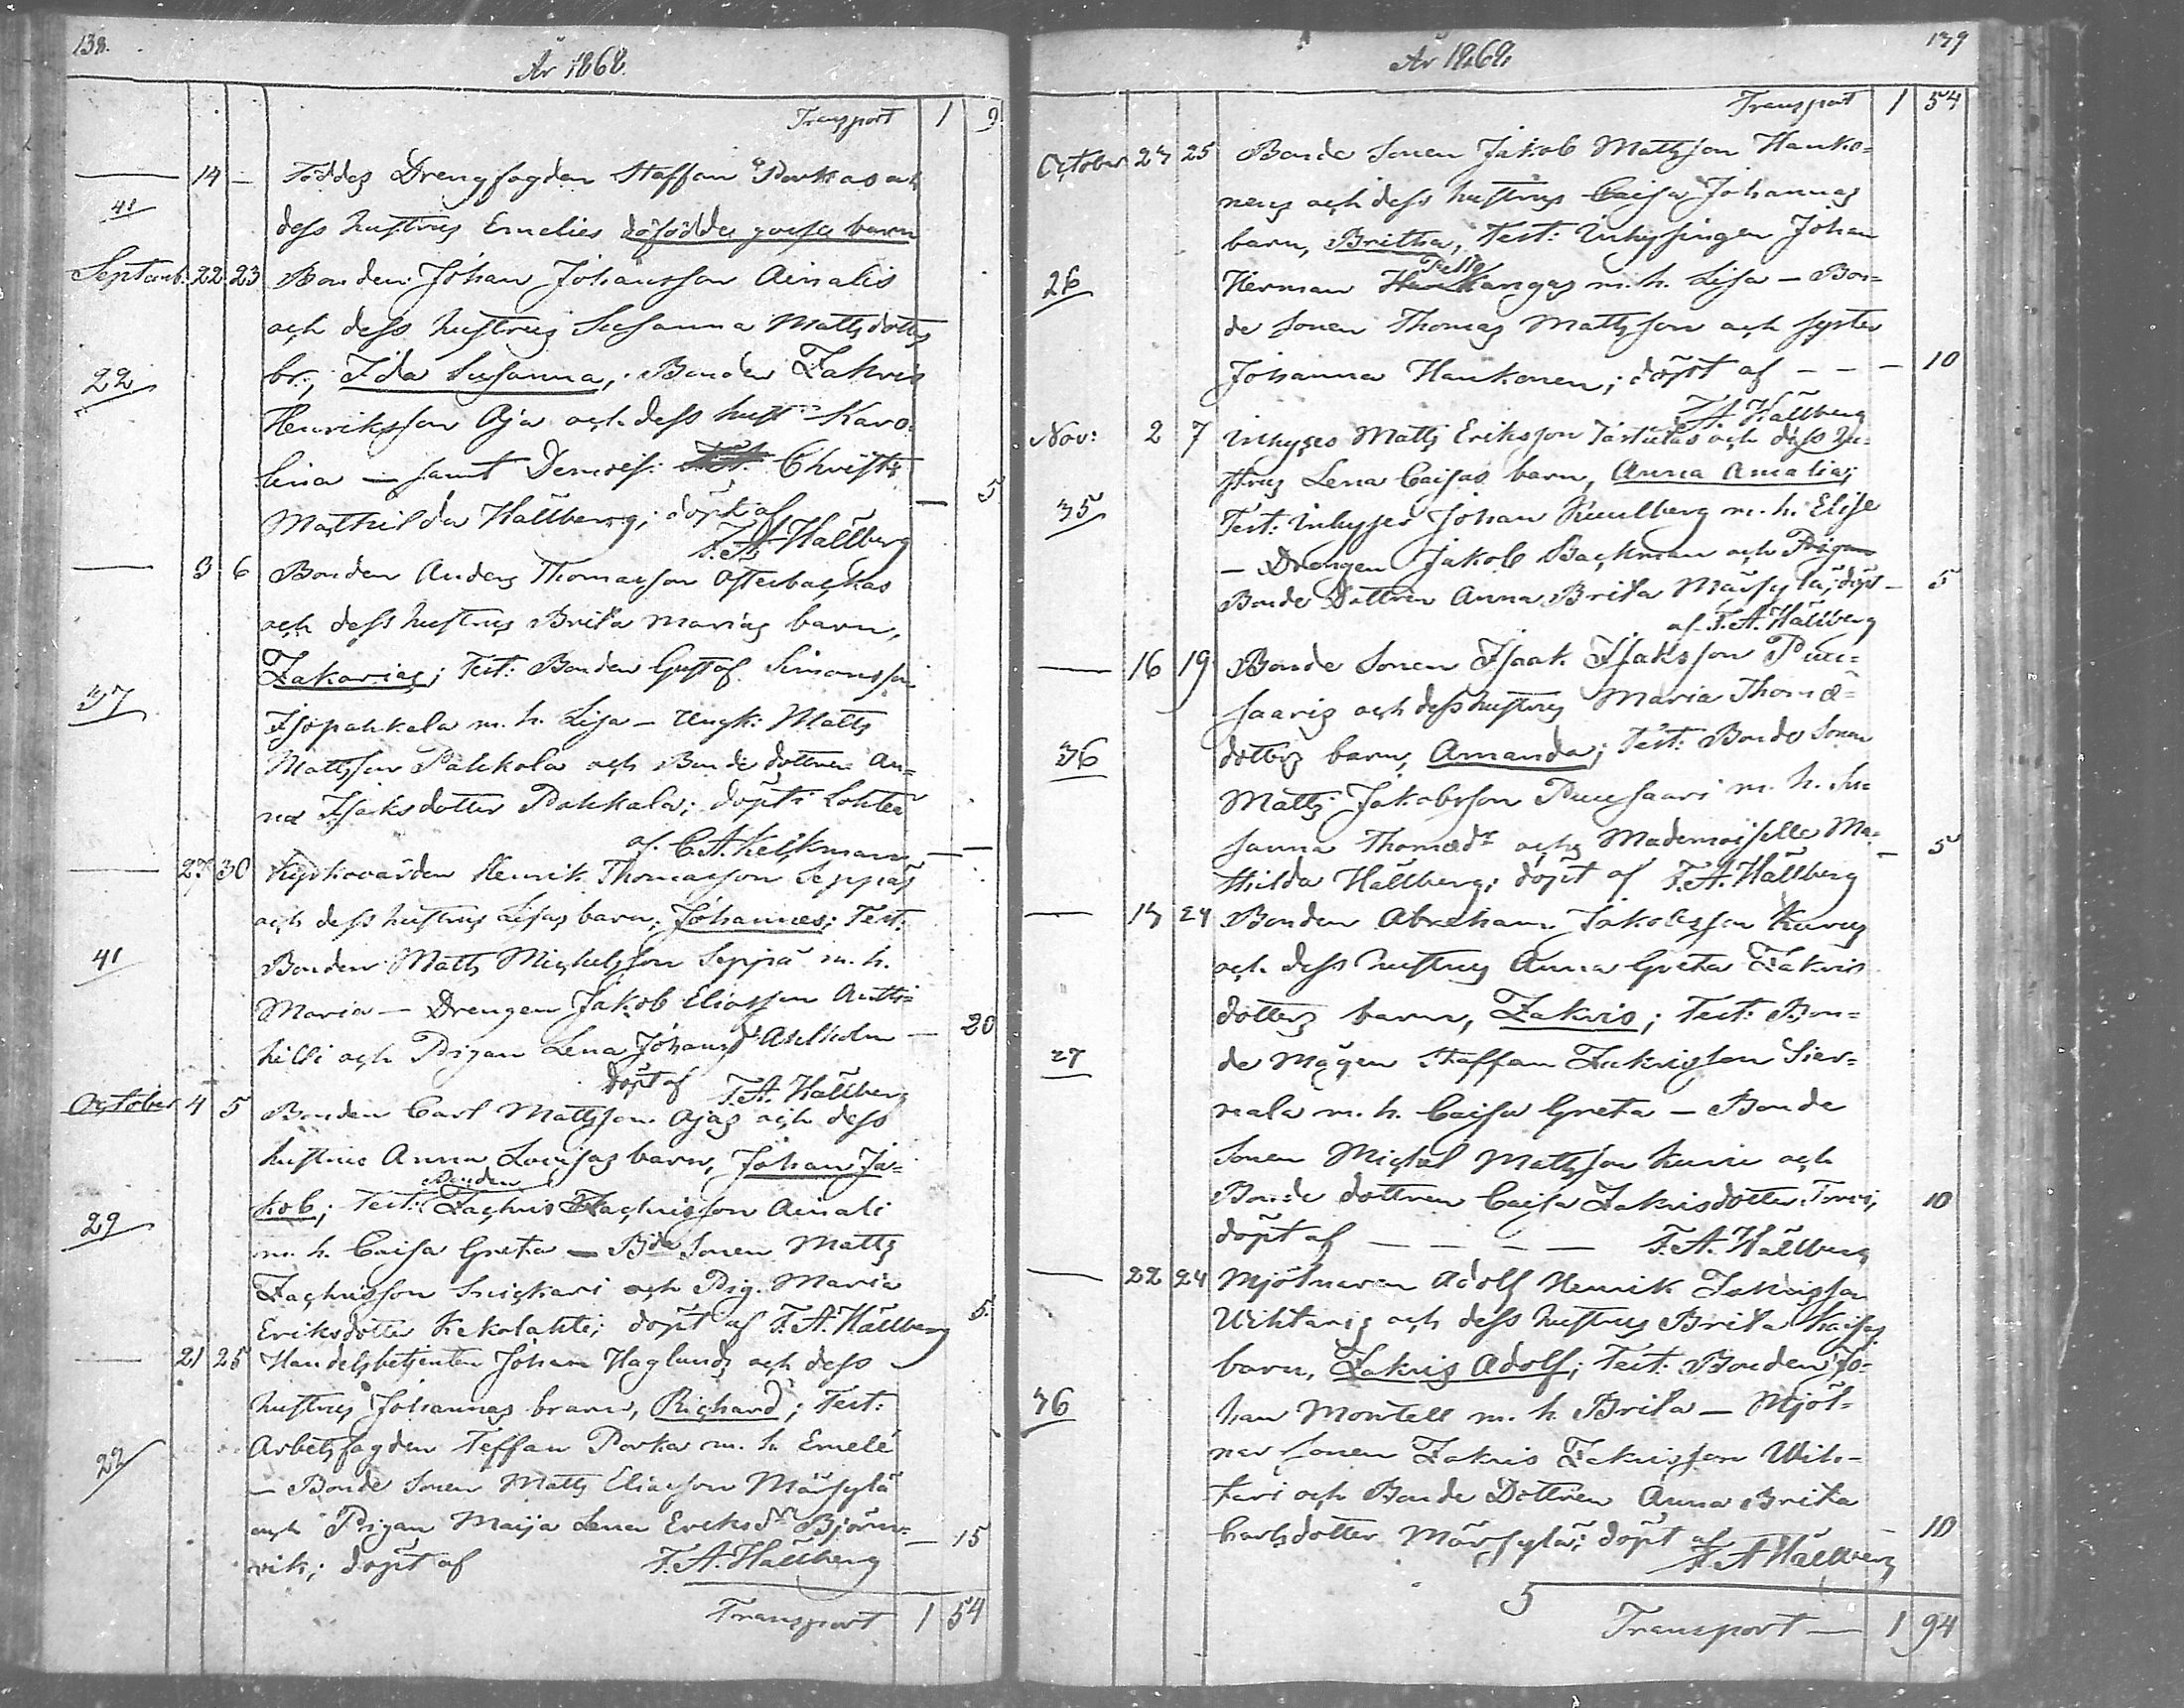 138.
År 1868.
Transport 1 9
14 — Föddes Drengfogden Staffan Porkas och
41
dess hustrus Emelies döfödda gosse barn
Septemb: 22 23 Bonden Johan Johansson Ainalis
och dess hustrus Susanna Mattsdotters
22
br:, Ida Susanna, Bonden Zakris
Henriksson Oja och dess hust Karo
lina — samt Demois: Christ:
Mathilda Hällberg; döpt af — 5
F. A. Hällberg
3 6 Bonden Anders Thomasson Åfterbackas
och dess hustrus Brita Marias barn,
Zakarias; Test: Bonden Gustaf Simonsson
37
Isopahkala m. h. Lisa — Ungk: Matts
Mattsson Pahkala och Bonde dottren An-
na Isaksdotter Pahkala; döpt i Lohteå
af C. A. Keckman — —
27 30 Kyrkovärden Henrik Thomasson Seppäs
och dess hustrus Lisas barn, Johannes; Test:
41
Bonden Matts Michelsson Seppä m. h.
Maria — Drengen Jakob Eliasson Antti-
hilli och Pigan Lena Johansdr Ahlholm — 20
döpt af F. A. Hällberg
October 4 5 Bonden Carl Mattsson Ojas och dess
hustrus Anna Lovisas barn, Johan Ja-
Bonden
kob; Test: Zachris Zachrisson Ainali
29
m. h. Caisa Greta — Bde Sonen Matts
Zachrisson Snickari och Pig. Maria
Eriksdotter Kekolahti; döpt af F. A. Hällberg 5
21 25 Handelsbetjenten Johan Haglunds och dess
hustrus Johannas bran, Richard; Test:
Arbetsfogden Teffan Porka m. h. Emelé
22
— Bonde Sonen Matts Eliasson Märsylä
och Pigan Maija Lena Ericksdr Björn-
vik; döpt af F. A. Hällberg — 15
Transport 1 54
139
År 1868.
Transport 1 54
October 23 25 Bonde Sonen Jakob Mattsson Hanko-
nens och dess hustrus Caisa Johannas
barn, Britha, Test: Inhysingen Johan
Pelto
26
Herman Kangas m. h. Lisa — Bon-
de Sonen Thomas Mattsson och syster
Johanna Hankonen; döpt af — — — 10
F. A. Hällberg
Nov: 2 7 Inhyses Matts Eriksson Tastulas och dess hu-
strus Lena Caisas barn, Anna Amalia;
35
Test: Inhyses Johan Kuulberg m. h. Elise
— Drengen Jakob Backman och Pigan
Bonde Dottren Anna Brita Märsylä; döpt — 5
af F. A. Hällberg
16 19 Bonde Sonen Isaak Isaksson Puu-
saaris och dess hustrus Maria Thomæ-
36
dotters barn, Amanda; Test: Bonde Sonen
Matts Jakobsson Puusaari m. h. Su-
sanna Thomædr och Mademoiselle Ma- — 5
thilda Hällberg; döpt af F. A. Hällberg
13 24 Bonden Abraham Jakobsson Kurus
och dess hustrus Anna Greta Zakris
dotters barn, Zakris; Test: Bon-
27
de Mågen Staffan Zakrisson Sier-
nala m. h. Caisa Greta — Bonde
Sonen Michel Mattsson och
Bonde dottren Caisa Zakrisdotter Torvi, 10
döpt af — — — — F. A. Hällberg
22 24 Mjölnaren Adolf Henrik Zakrisson
Wihtaris och dess hustrus Brita Kaisas
barn, Zakris Adolf; Test: Bonden Jo-
36
han Montell m. h. Brita — Mjöl-
nar Sonen Zakris Zakrisson Wih-
tari och Bonde Dottren Anna Brita
Carlsdotter Märsylä; döpt af — 10
F. A. Hällberg
5
Transport — 1 94